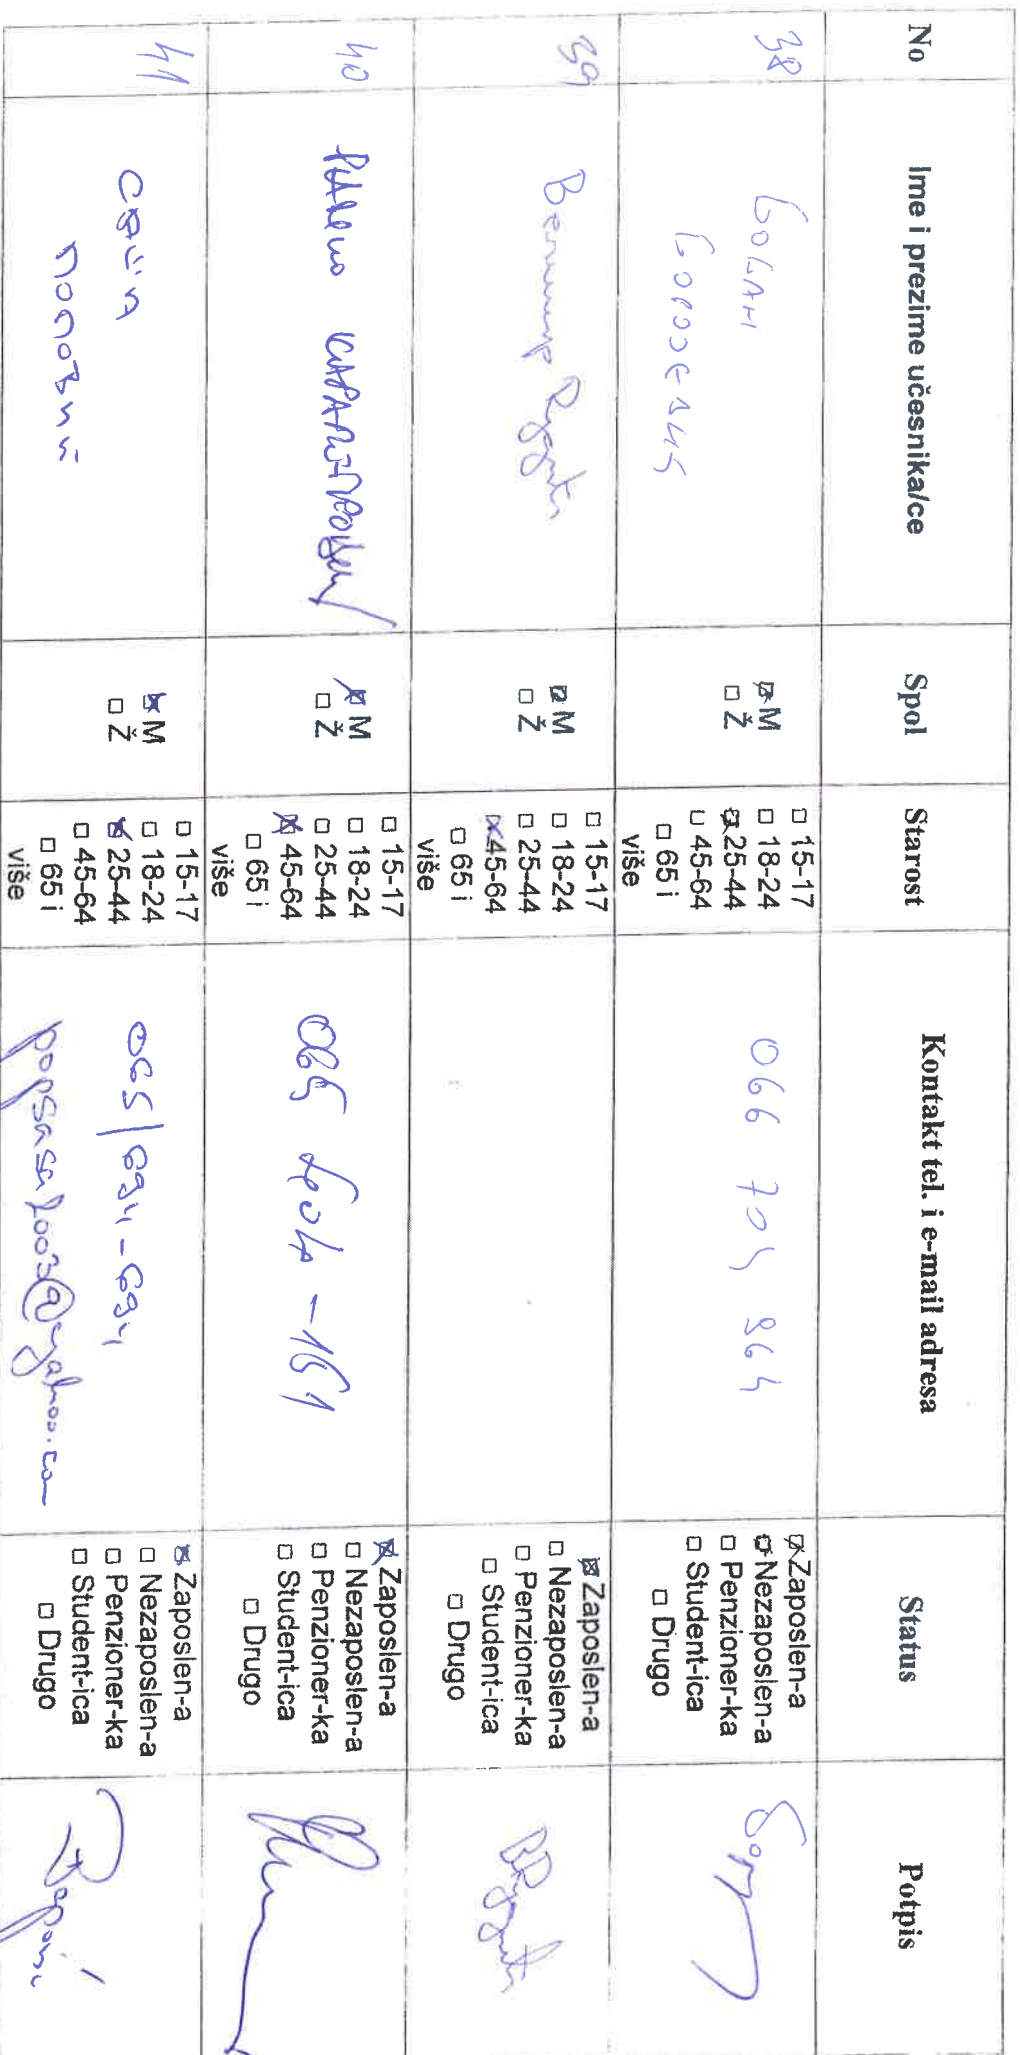 No Ime i prezime učesnika/ce Spol Starost Kontakt tel. i e-mail adresa Status Potpis
38
□ M
□ Ž
□ 15-17
□ 18-24
□ 25-44
□ 45-64
□ 65 i
više
066 704 964
□ Zaposlen-a
□ Nezaposlen-a
□ Penzioner-ka
□ Student-ica
□ Drugo
39
□ M
□ Ž
□ 15-17
□ 18-24
□ 25-44
□ 45-64
□ 65 i
više
□ Zaposlen-a
□ Nezaposlen-a
□ Penzioner-ka
□ Student-ica
□ Drugo
40
□ M
□ Ž
□ 15-17
□ 18-24
□ 25-44
□ 45-64
□ 65 i
više
□ Zaposlen-a
□ Nezaposlen-a
□ Penzioner-ka
□ Student-ica
□ Drugo
41
САША
ПОПОВИЋ
□ M
□ Ž
□ 15-17
□ 18-24
□ 25-44
□ 45-64
□ 65 i
više
065/694-694
popsasa2003@yahoo.com
□ Zaposlen-a
□ Nezaposlen-a
□ Penzioner-ka
□ Student-ica
□ Drugo